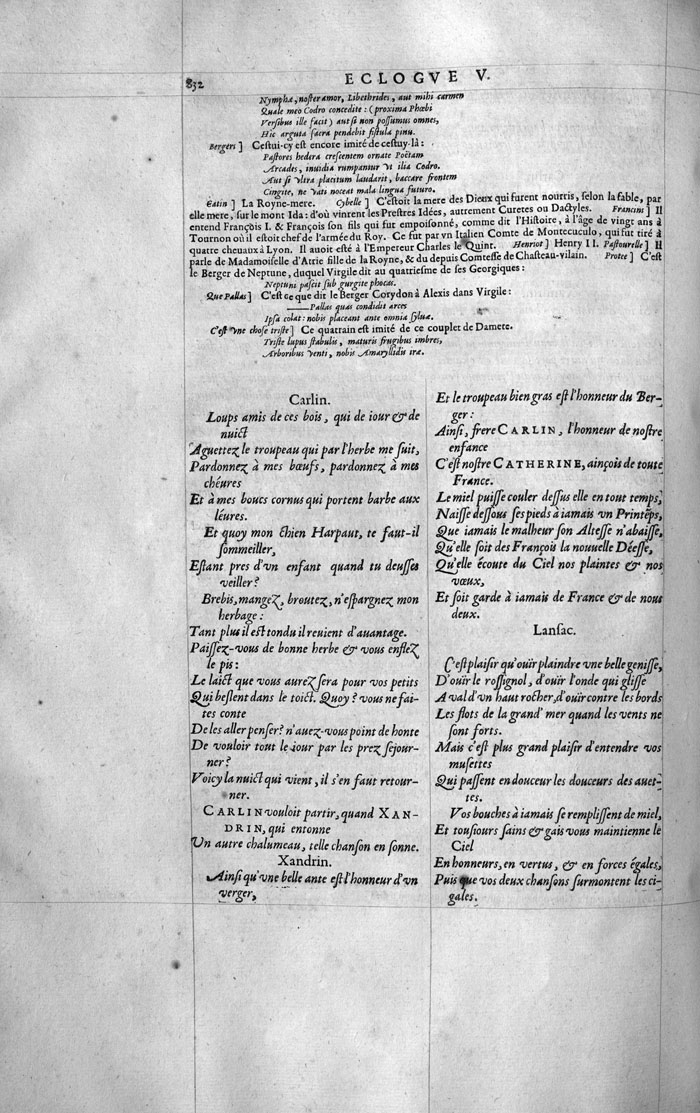 832
ECLOGVE V.
Nymphæ, noster amor, Libethrides, aut mihi carmen
Quale meo Codro concedite: (proxima Phœbi
Versibus ille facit) aut si non possumus omnes,
Hic arguta sacra pendebit fistula pinu.
Bergers] Cestui-cy est encore imité de cestuy-là:
Pastores hedera crescentem ornate Poëtam
Arcades, inuidia rumpantur vt ilia Codro.
Aut si vltra placitum laudarit, baccare frontem
Cingite, ne vati noceat mala lingua futuro.
Catin ] La Royne-mere. Cybelle ] C'estoit la mere des Dieux qui furent nourris, selon la fable, par
elle mere, sur le mont Ida: d'où vinrent les Prestres Idées, autrement Curetes ou Dactyles. Francins ] Il
entend François I. & François son fils qui fut empoisonné, comme dit l'Histoire, à l'âge de vingt ans à
Tournon où il estoit chef de l'armée du Roy. Ce fut par vn Italien Comte de Montecuculo, qui fut tiré à
quatre cheuaux à Lyon. Il auoit esté à l'Empereur Charles le Quint. Henriot ] Henry II. Pastourelle ] Il
parle de Madamoiselle d'Atrie fille de la Royne, & du depuis Comtesse de Chasteau-vilain. Protee ] C'est
le Berger de Neptune, duquel Virgile dit au quatriesme de ses Georgiques:
Neptuni pascit sub gurgite phocas.
Que Pallas ] C'est ce que dit le Berger Corydon à Alexis dans Virgile:
——Pallas quas condidit arces
Ipsa colat: nobis placeant ante omnia syluæ.
C'est vne chose triste ] Ce quatrain est imité de ce couplet de Damete.
Triste lupus stabulis, maturis frugibus imbres,
Arboribus venti, nobis Amaryllidis iræ.
Carlin.
Loups amis de ces bois, qui de iour & de
nuict
Aguettez le troupeau qui par l'herbe me suit,
Pardonnez à mes bœufs, pardonnez à mes
chéures
Et à mes boucs cornus qui portent barbe aux
léures.
Et quoy mon chien Harpaut, te faut-il
sommeiller,
Estant pres d'vn enfant quand tu deusses
veiller?
Brebis, mangez, broutez, n'espargnez mon
herbage:
Tant plus il est tondu il reuient d'auantage.
Paissez-vous de bonne herbe & vous enflez
le pis:
Le laict que vous aurez sera pour vos petits
Qui beslent dans le toict. Quoy? vous ne fai-
tes conte
De les aller penser? n'auez-vous point de honte
De vouloir tout le iour par les prez sejour-
ner?
Voicy la nuict qui vient, il s'en faut retour-
ner.
CARLIN vouloit partir, quand XAN-
DRIN, qui entonne
Vn autre chalumeau, telle chanson en sonne.
Xandrin.
Ainsi qu'vne belle ante est l'honneur d'vn
verger,
Et le troupeau bien gras est l'honneur du Ber-
ger:
Ainsi, frere CARLIN, l'honneur de nostre
enfance
C'est nostre CATHERINE, ainçois de toute
France.
Le miel puisse couler dessus elle en tout temps,
Naisse dessous ses pieds à iamais vn Printẽps,
Que iamais le malheur son Altesse n'abaisse,
Qu'elle soit des François la nouuelle Déesse,
Qu'elle écoute du Ciel nos plaintes & nos
vœux,
Et soit garde à iamais de France & de nous
deux.
Lansac.
C'est plaisir qu'ouir plaindre vne belle genisse,
D'ouir le rossignol, d'ouir l'onde qui glisse
A val d'vn haut rocher, d'ouir contre les bords
Les flots de la grand' mer quand les vents ne
sont forts.
Mais c'est plus grand plaisir d'entendre vos
musettes
Qui passent en douceur les douceurs des auet-
tes.
Vos bouches à iamais se remplissent de miel,
Et tousiours sains & gais vous maintienne le
Ciel
En honneurs, en vertus, & en forces égales,
Puis que vos deux chansons surmontent les ci-
gales.